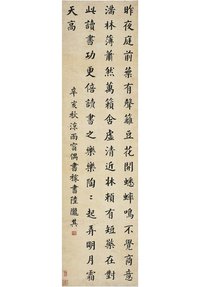 昨夜庭前葉有聲籬豆花開蟋蟀鳴不覺商意
滿林薄蕭然萬籟含虛清近牀賴有短檠在對
此讀書功更倍讀書之樂樂陶〻起弄明月霜
天高
辛亥秋涼雨窗偶書稼書陸隴其